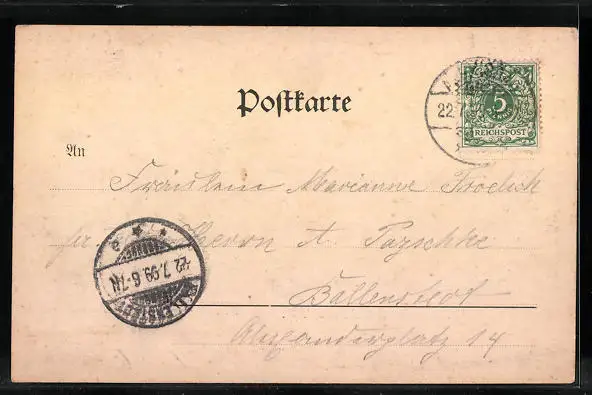 Postkarte
5
REICHSPOST
22.7
An
Fräulein Marianne Froelich
Herrn A. Pazschke
Ballenstedt
Alexanderplatz 14
BALLENSTEDT
22.7.99.6-7N.
a